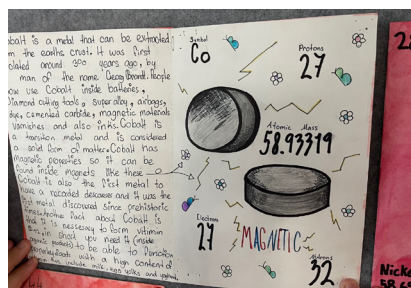 Cobalt is a metal that can be extracted
from the earths crust. It was first
isolated around 300 years ago, by
man of the name Georg Brandt. People
now use Cobalt inside batteries,
Diamond cutting tools, super alloy, airbags,
dye, cemented carbide, magnetic materials
varnishes and also inks. Cobalt is
a transiton metal and is considered
a solid form of matter. Cobalt has
magnetic properties so it can be
found inside magnets like these
Cobalt is also the first metal to
have a recorded descoverer and it was the
first metal discovered since prehistoric
times. Another fact about Cobalt is
that it is nessesary to form vitimin
in short you need it (inside
products) to be able to function
with a high content of
include milk, egg yolks and
Symbol
Co
Protons
27
Atomic Mass
58.93319
Electrons
27
MAGNETIC
Neutrons
32
Nicke